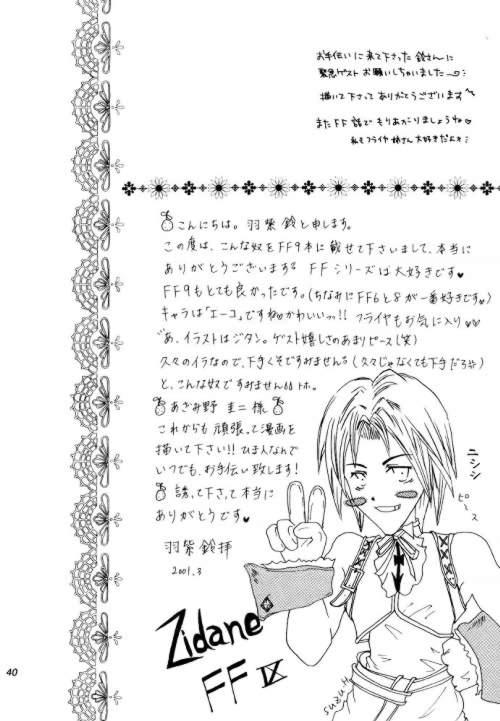 お手伝いに来て下さった鈴さんに
緊急ゲストお願いしちゃいました
描いて下さってありがとうございます
またFF話でもりあがりましょうね♡
私もフライヤ姉さん大好きだよ
こんにちは。羽柴鈴と申します。
この度は、こんな奴をFF9本に載せて下さいまして、本当に
ありがとうございます FFシリーズは大好きです♥
FF9もとても良かったです。(ちなみにFF6と8が一番好きです♥)
キャラは「エーコ」ですね♡かわいいっ!! フライヤもお気に入り♡♡
あ、イラストはジタン。ゲスト嬉しさのあまりピース(笑)
久々のイラなので、下手くそですみません(久々じゃなくても下手だろ☆)
と、こんな奴ですみません トホ。
あざみ野 圭二 様
これからも頑張って漫画を
描いて下さい!! ひま人なんで
いつでも、お手伝い致します!
誘って下さって本当に
ありがとうです♥
羽柴鈴拝
2001.3
ニシシ
ピース
Zidane
FF IX
suzuH
40